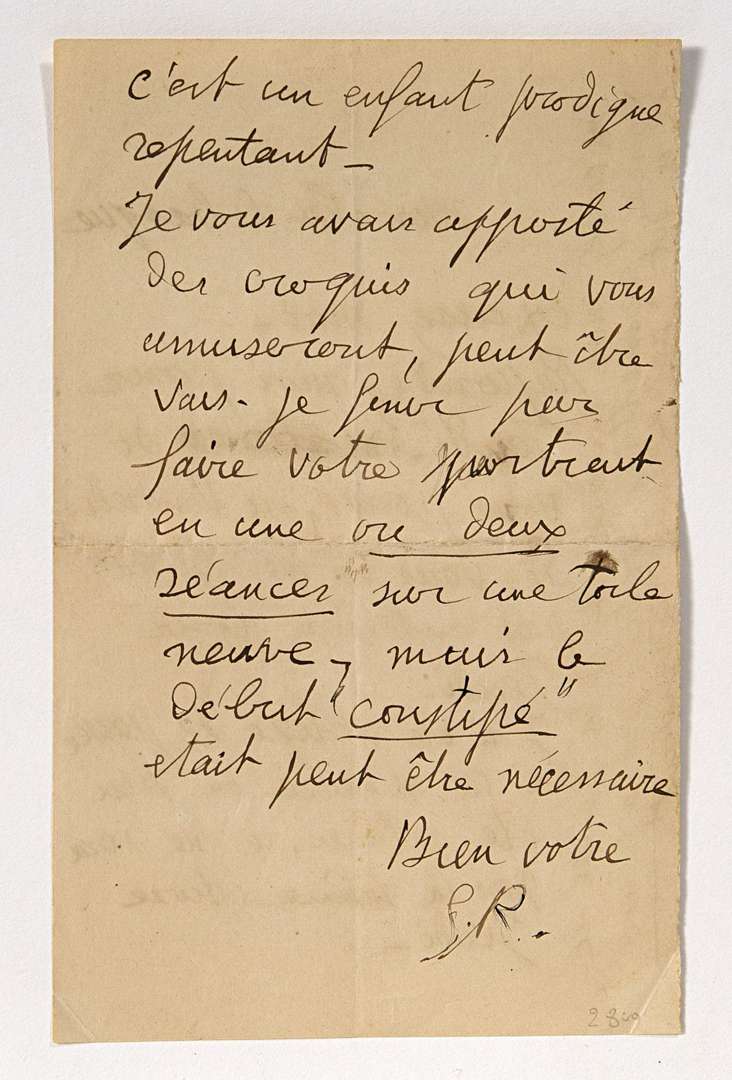 c'est un enfant prodigue
repentant _
Je vous avais apporté
des croquis qui vous
amuseront, peut être
vais-je finir par
faire votre portrait
en une ou deux
séances sur une toile
neuve _, mais le
début "constipé"
etait peut être nécessaire
Bien votre
G.R.